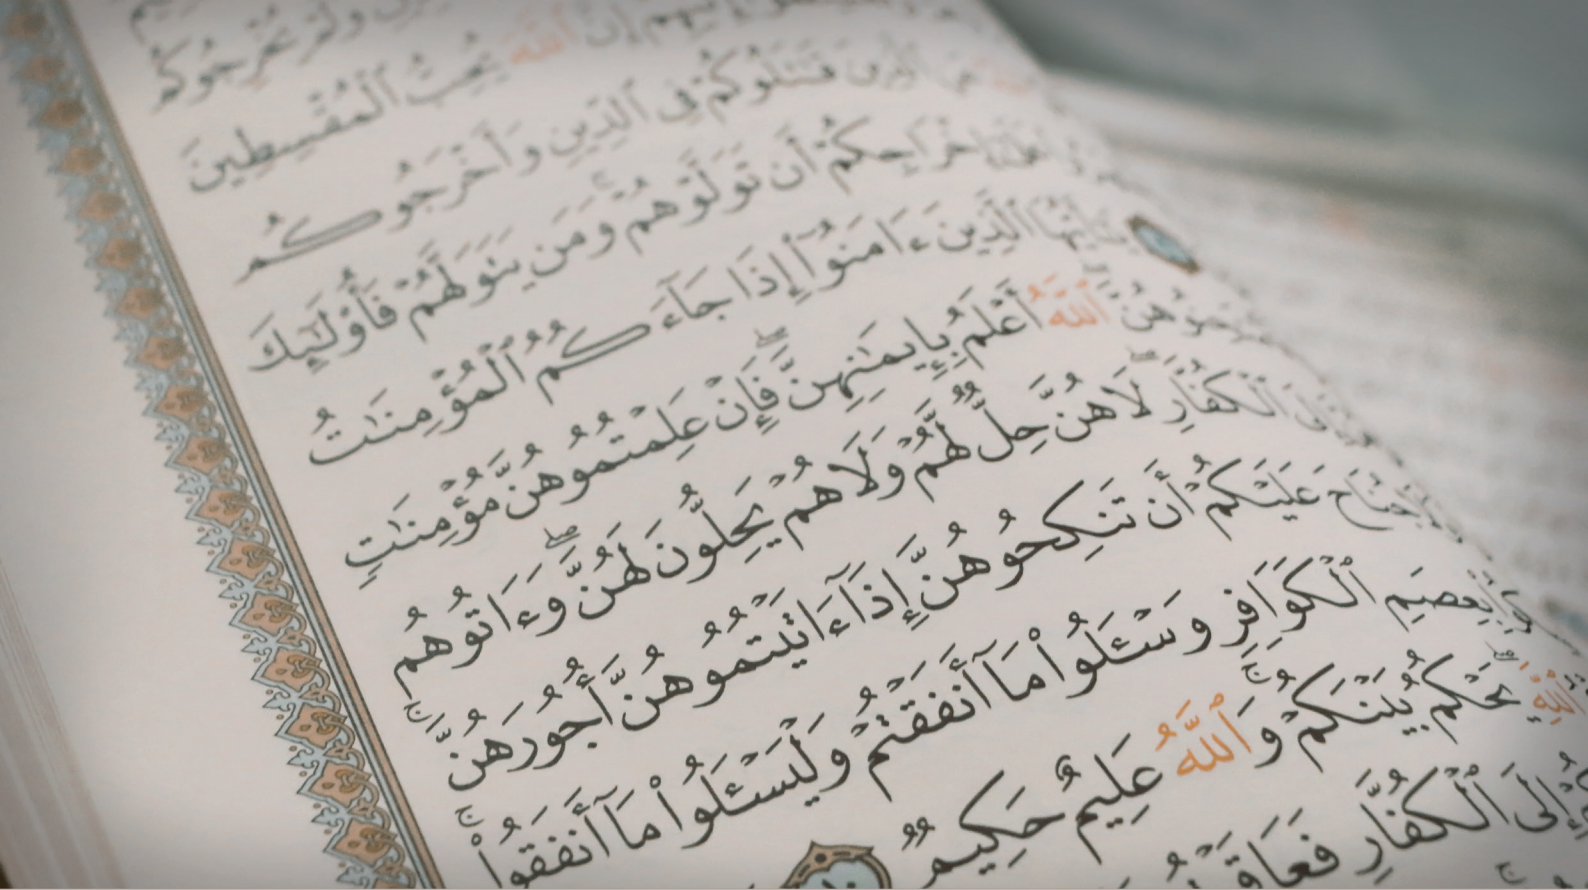 ولم يخرجوكم
إن ٱللَّهَ يُحِبُّ ٱلْمُقْسِطِينَ
ٱلَّذِينَ قَٰتَلُوكُمْ فِى ٱلدِّينِ وَأَخْرَجُوكُم
إِخْرَاجِكُمْ أَن تَوَلَّوْهُمْ وَمَن يَتَوَلَّهُمْ فَأُو۟لَٰٓئِكَ
يَٰٓأَيُّهَا ٱلَّذِينَ ءَامَنُوٓا۟ إِذَا جَآءَكُمُ ٱلْمُؤْمِنَٰتُ
ٱللَّهُ أَعْلَمُ بِإِيمَٰنِهِنَّ ۖ فَإِنْ عَلِمْتُمُوهُنَّ مُؤْمِنَٰتٍ
ٱلْكُفَّارِ ۖ لَا هُنَّ حِلٌّ لَّهُمْ وَلَا هُمْ يَحِلُّونَ لَهُنَّ ۖ وَءَاتُوهُم
جُنَاحَ عَلَيْكُمْ أَن تَنكِحُوهُنَّ إِذَآ ءَاتَيْتُمُوهُنَّ أُجُورَهُنَّ ۚ
بِعِصَمِ ٱلْكَوَافِرِ وَسْـَٔلُوا۟ مَآ أَنفَقْتُمْ وَلْيَسْـَٔلُوا۟ مَآ أَنفَقُوا۟ ۚ
ٱللَّهِ ۖ يَحْكُمُ بَيْنَكُمْ ۚ وَٱللَّهُ عَلِيمٌ حَكِيمٌ
إِلَى ٱلْكُفَّارِ